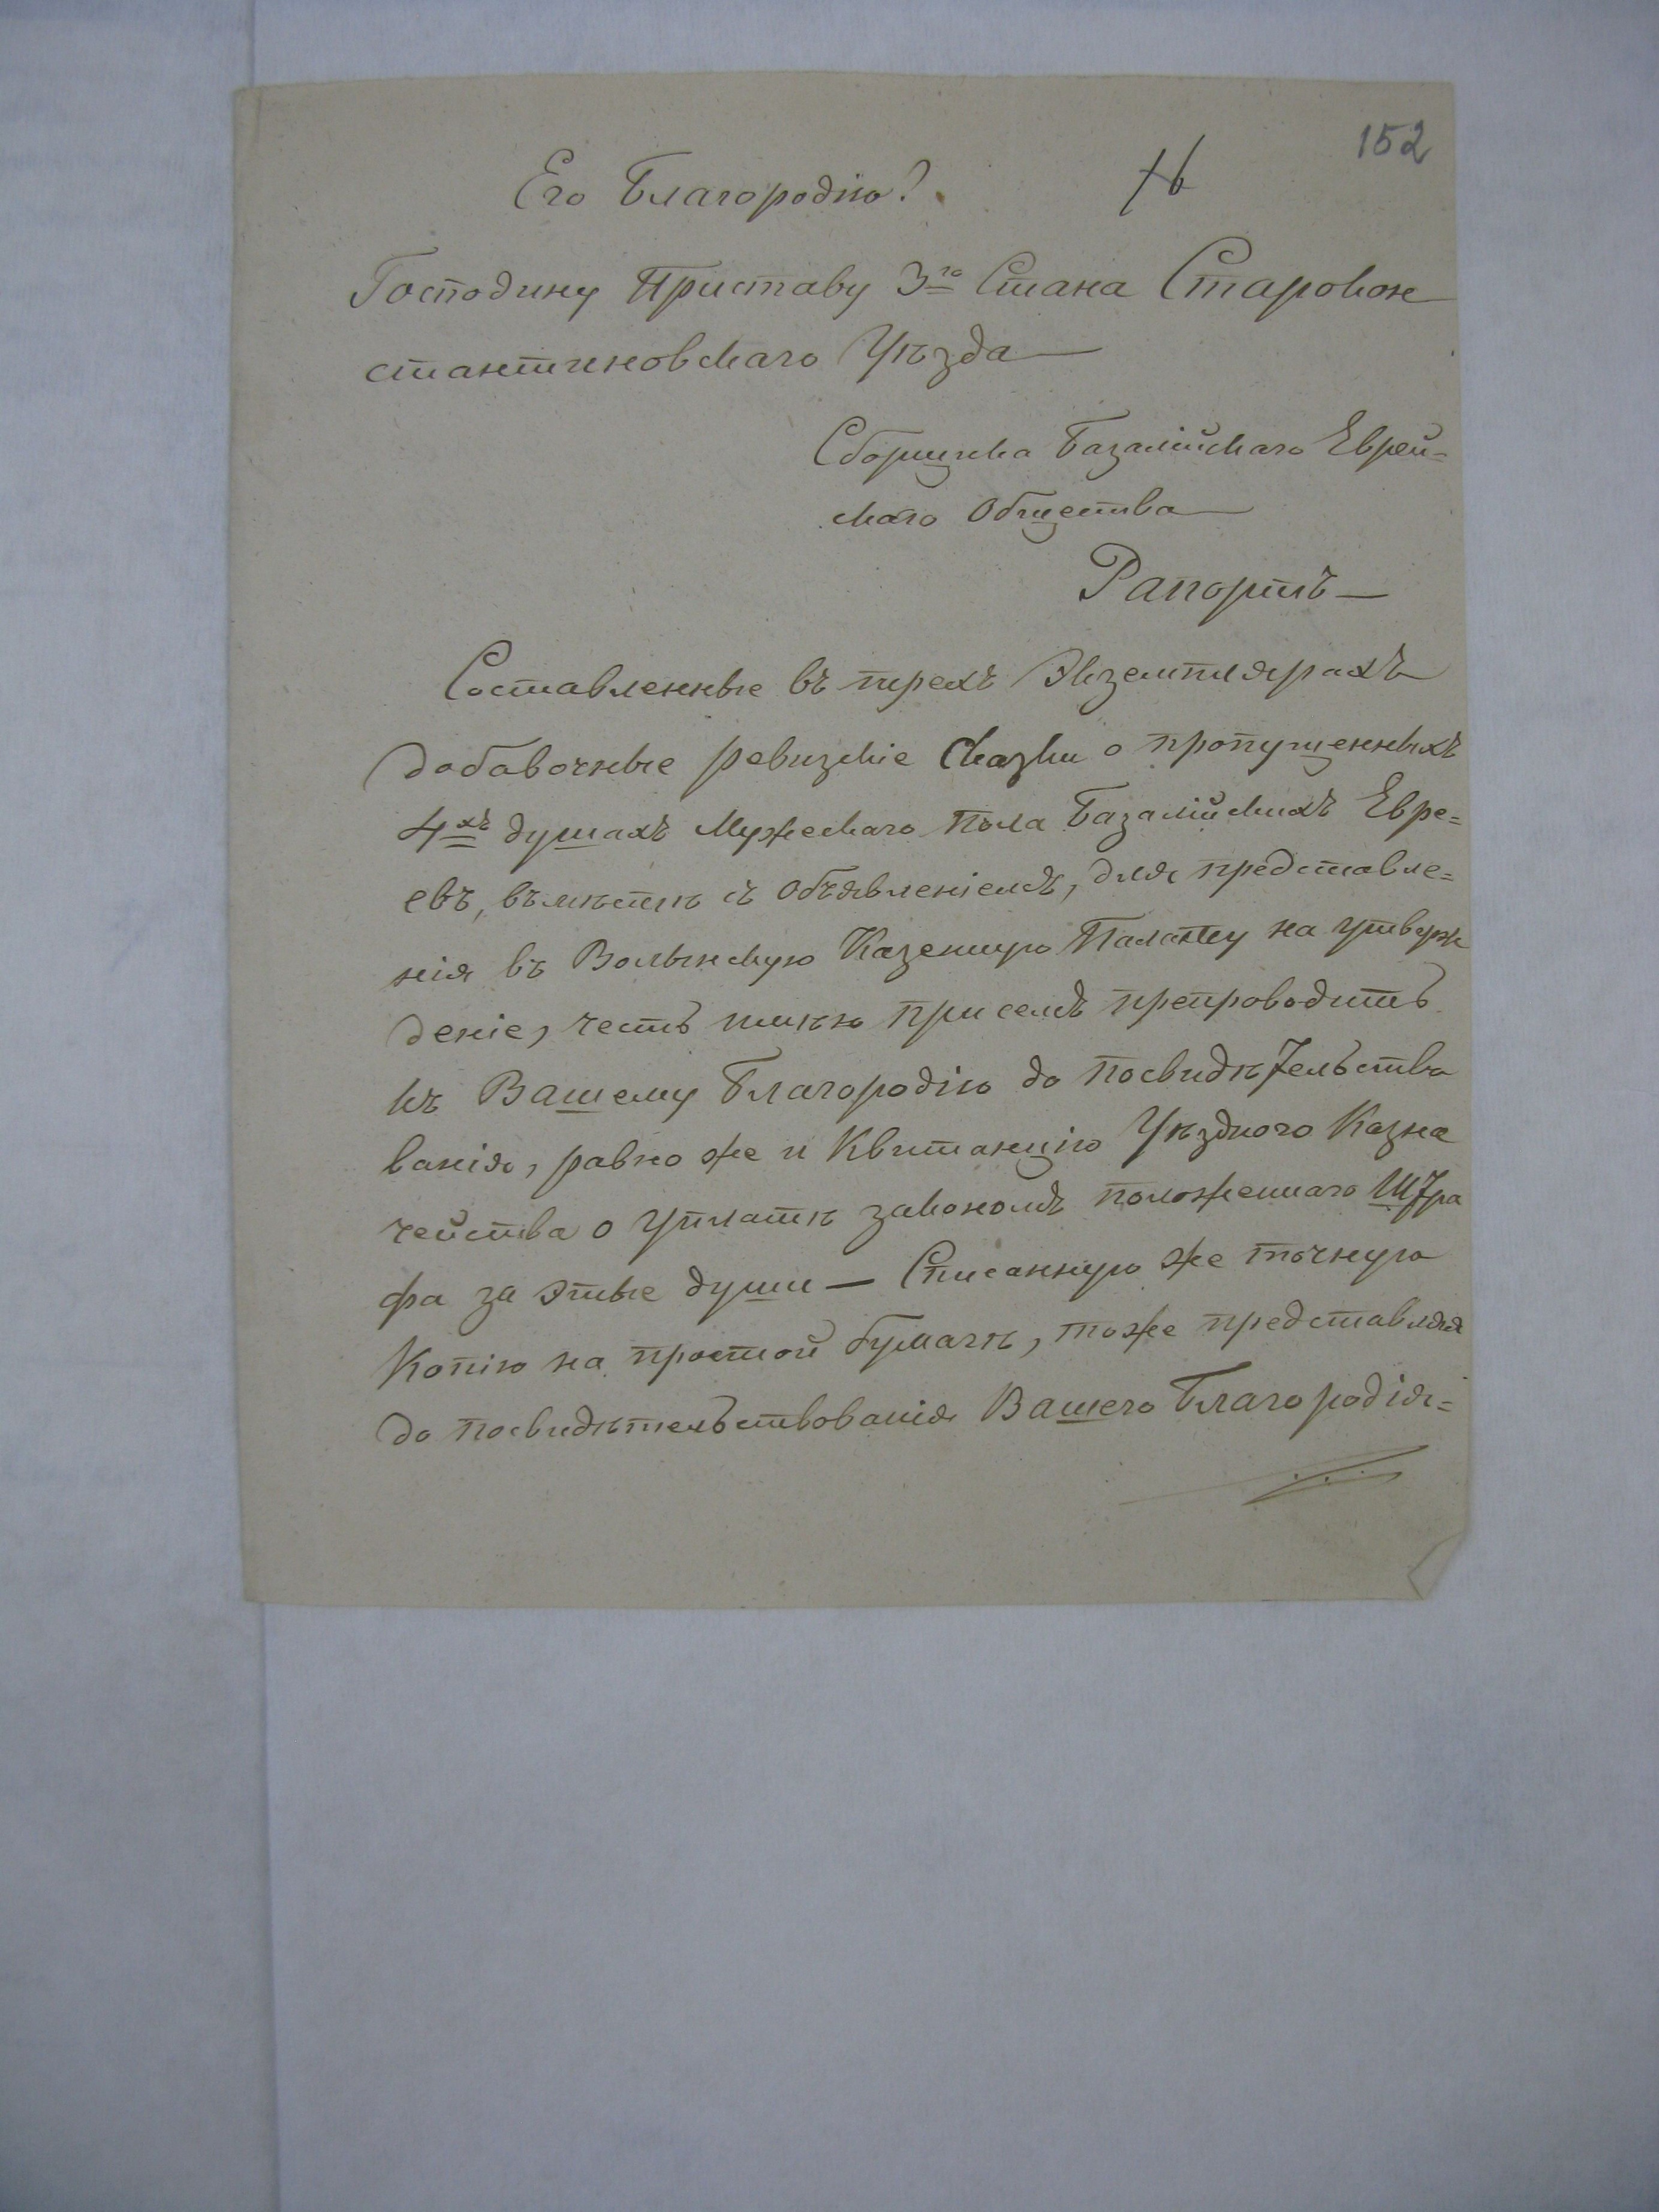 152
Его Благородію!
Господину Приставу 3го Стана Старокон
стантиновскаго Уѣзда
Сборщика Базалійскаго Еврей=
скаго Общества
Рапортъ
Составленные въ трехъ Экземплярахъ
добавочные ревизскіе Сказки о пропущенныхъ
4хъ душахъ Мужескаго пола Базалійскихъ Евре=
евъ, въмѣстѣ съ Объявленіемъ, для представле=
нія въ Волынскую Казенную Палату на утверж
деніе, честь имѣю присемъ препроводить
къ Вашему Благородію до посвидѣтельство
ванія, равно же и Квитанцію Уѣздного Казна
чейства о Уплатѣ закономъ положеннаго Штра
фа за этые души — Списанную же точную
Копію на простой бумагѣ, тоже представляя
до посвидѣтельствованія Вашего Благородія=